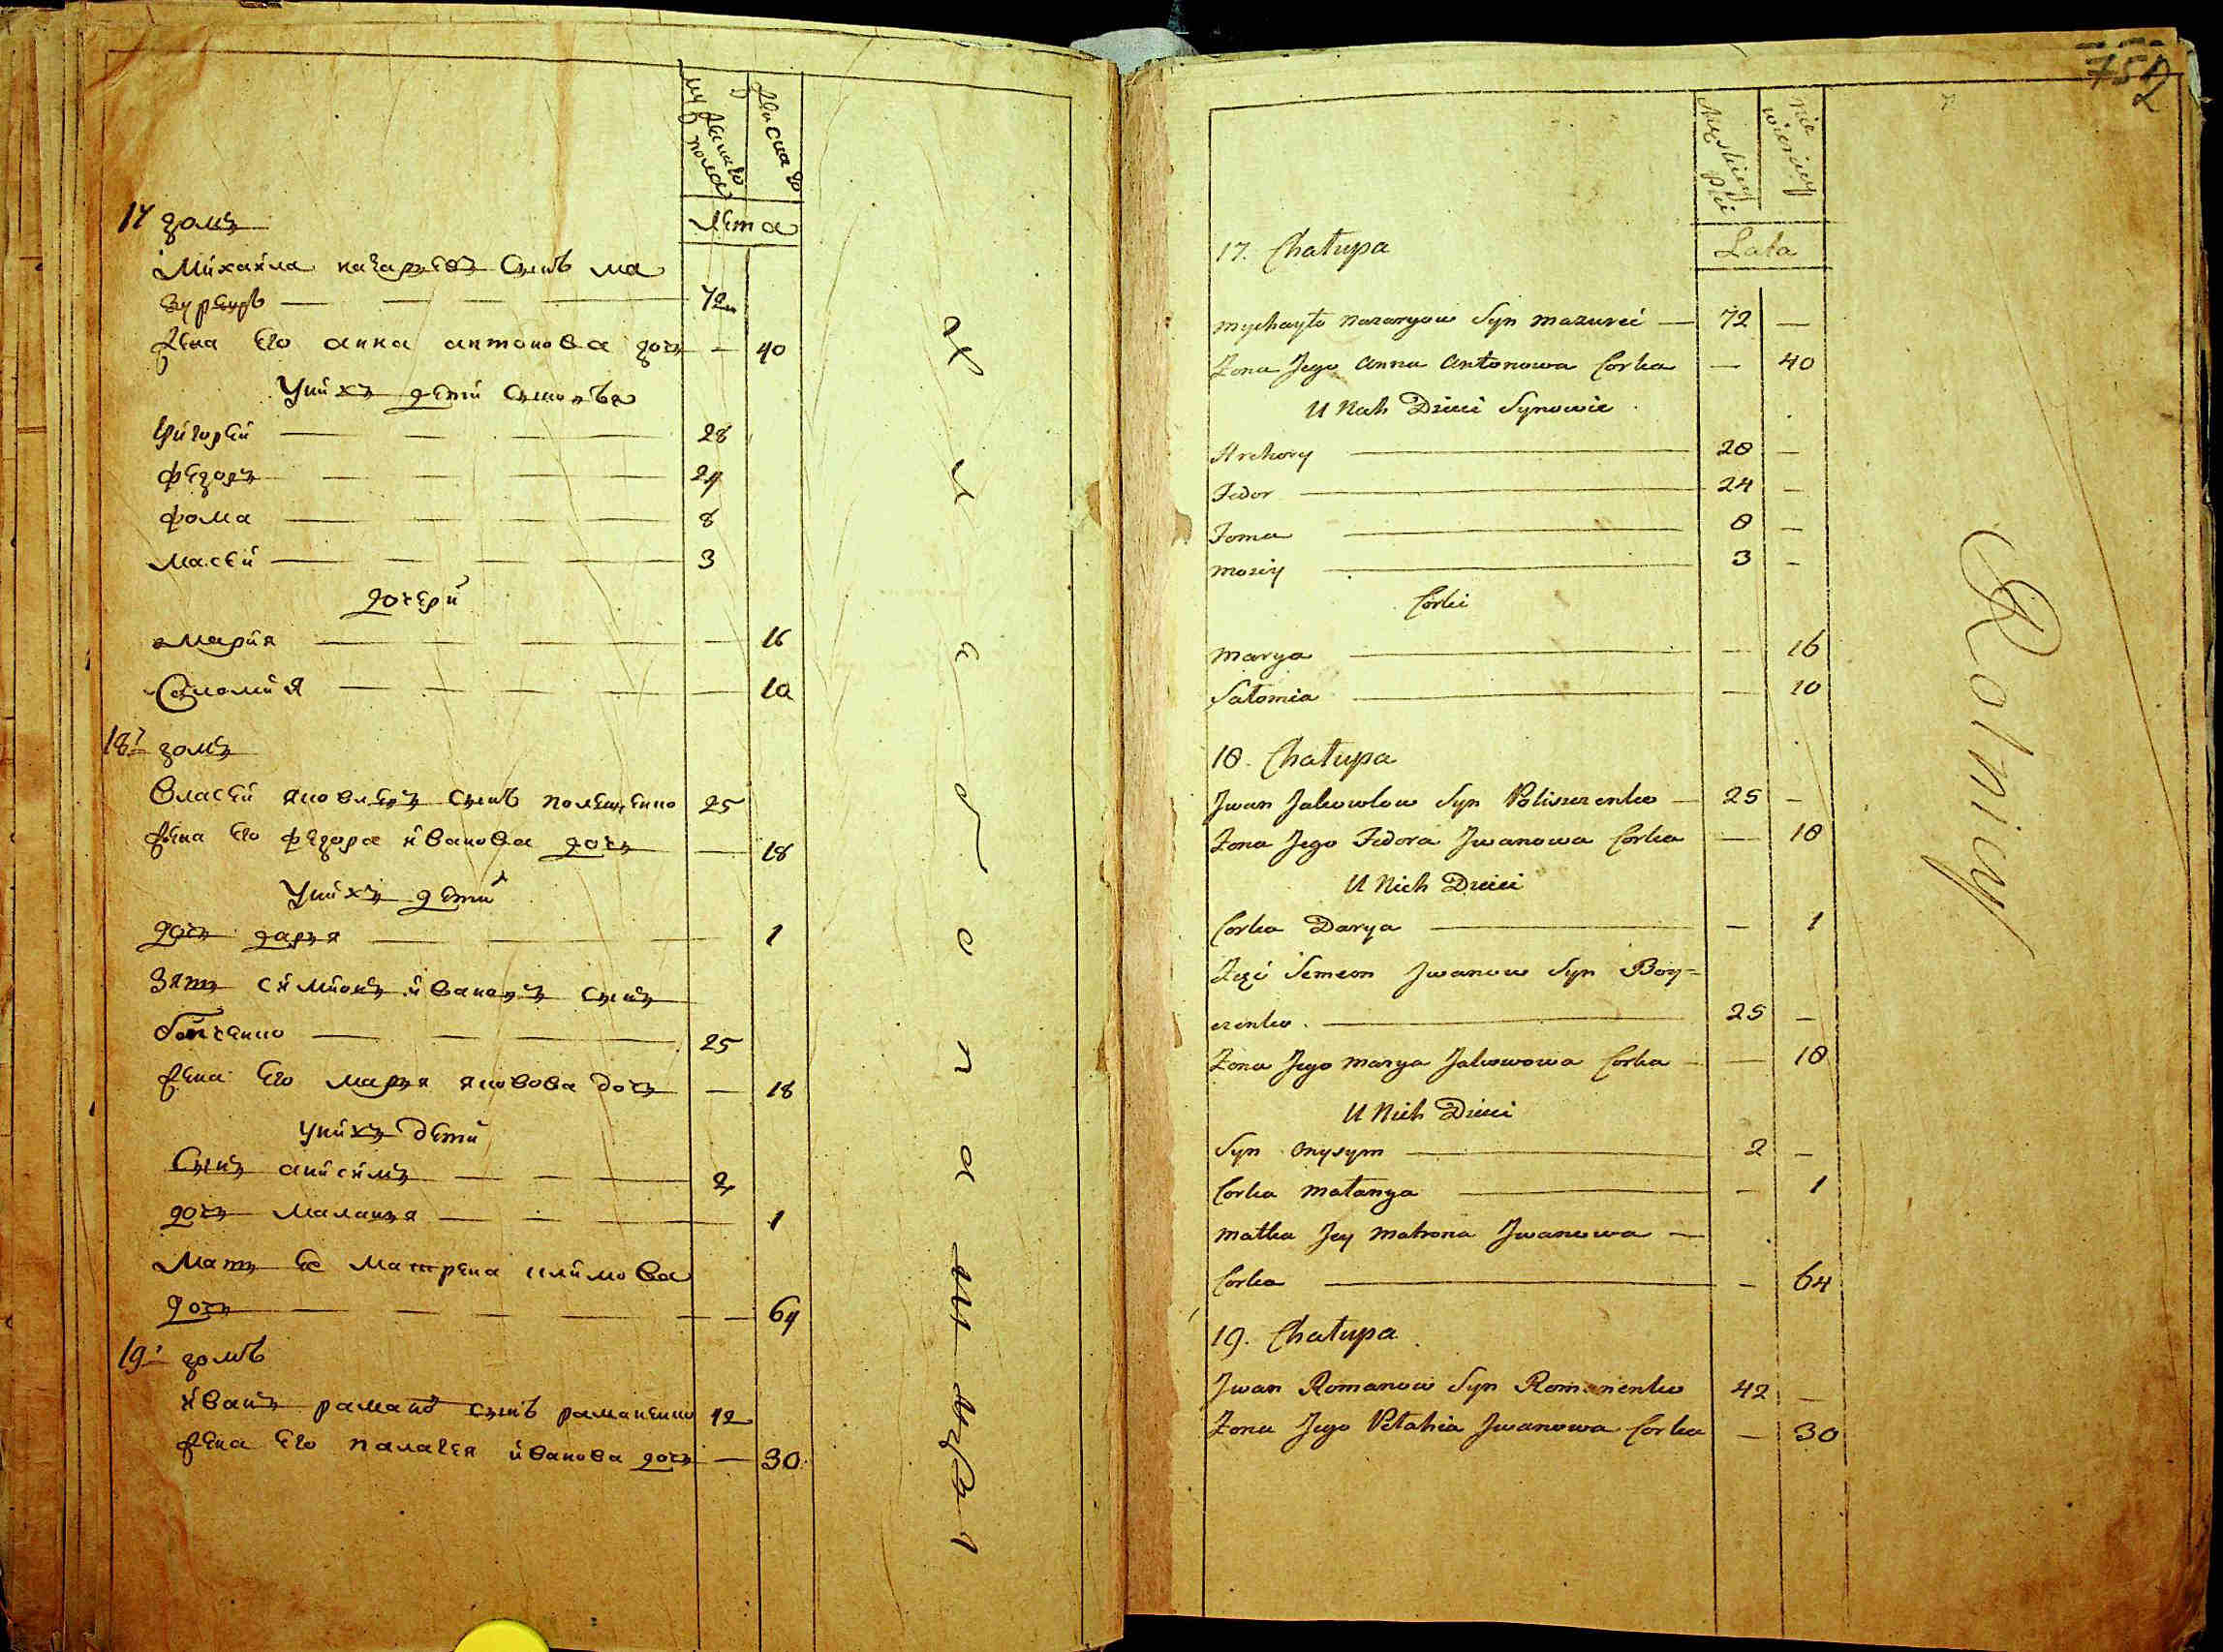 17 домъ
мужеска
пола
женска
Лета
Михайла назаревъ сынъ ма
зурецъ — 72
Жена Его анна антонова дочь — 40
У нихъ дети сыновья
григорей — 28
федоръ — 24
фома — 8
масей — 3
дочери
мария — 16
Соломия — 10
18й домъ
Власей яковлевъ сынъ полещенко 25
жена Его федора иванова дочь — 18
У нихъ дети
дочь дарья — 1
Зять симионъ ивановъ сынъ
бойченко — 25
жена Его марья яковова дочь — 18
У нихъ дети
Сынъ анисимъ — 2
дочь маланья — 1
Мать Ее матрена климова
дочь — 64
19й домъ
иванъ романовъ сынъ раманенко 42
жена Его палагея иванова дочь — 30
752
Męskiey
Płci
Nie
wieściey
Lata
17. Chałupa
Mychayło Nazaryow Syn Mazureć — 72 —
Żona Jego Anna Antonowa Corka — 40
U Nich Dzieci Synowie
Hrehory — 28 —
Fedor — 24 —
Foma — 8 —
Mosiy — 3 —
Corki
Marya — 16
Sałomia — 10
18. Chałupa
Jwan Jakowlow Syn Poliszczenko — 25 —
Żona Jego Fedora Jwanowa Corka — 18
U Nich Dzieci
Corka Darya — 1
Zięć Semeon Jwanow Syn Boy=
czenko. — 25 —
Żona Jego Marya Jakowowa Corka — 18
U Nich Dzieci
Syn Onysym — 2 —
Corka Małanya — 1
Matka Jey Matrona Jwanowa —
Corka — 64
19. Chałupa
Jwan Romanow Syn Romanenko 42 —
Żona Jego Pełahia Jwanowa Corka — 30
Rolnicy